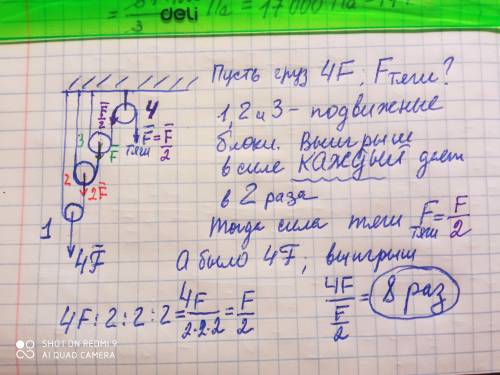 = 51 / 3 Па = 17 000 Па =
deli
Пусть груз 4F; Fтяги?
1,2 и 3 – подвижные
блоки. Выигрыш
в силе КАЖДЫЙ дает
в 2 раза
Тогда сила тяги Fтяги = F/2
А было 4F; выигрыш
4F / F/2 = 8 раз
F/2
4
3
F
Fтяги = F/2
2
2F
1
4F
4F : 2 : 2 : 2 = 4F / 2·2·2 = F/2
SHOT ON REDMI 9
AI QUAD CAMERA